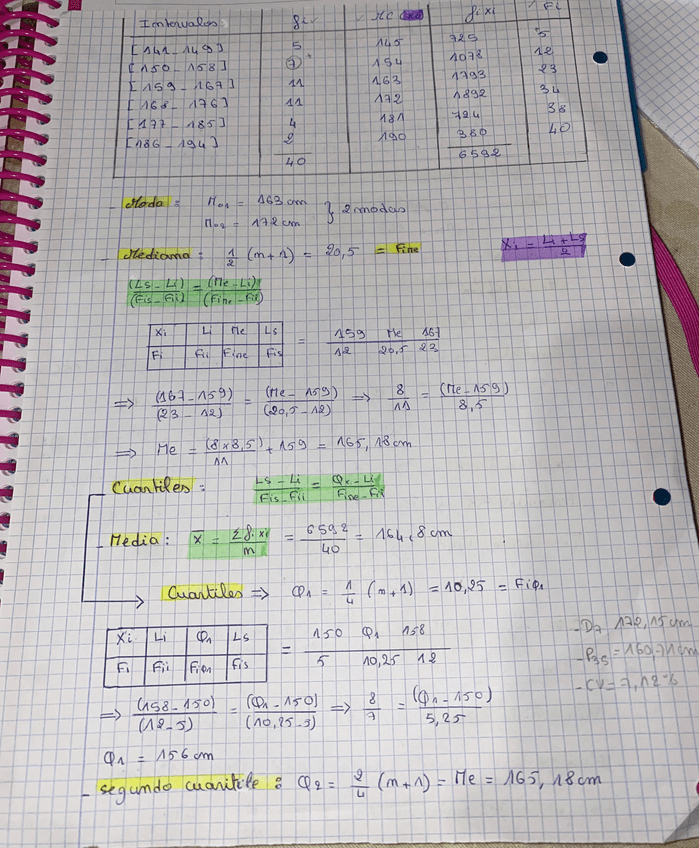 Intervalos fi xi fixi Fi
[141-149] 5 145 725 5
[150-158] 7 154 1078 12
[159-167] 11 163 1793 23
[168-176] 11 172 1892 34
[177-185] 4 181 724 38
[186-194] 2 190 380 40
40 6592
- Moda: Mo1 = 163 cm
Mo2 = 172 cm } 2 modas
- Mediana: 1/2 (n+1) = 20,5 = Fime
Xi = Li+Ls/2
(Ls-Li)/(Fis-Fii) = (Me-Li)/(Fime-Fii)
Xi Li Me Ls = 159 Me 167
Fi Fii Fime Fis 12 20,5 23
⇒ (167-159)/(23-12) = (Me-159)/(20,5-12) ⇒ 8/11 = (Me-159)/8,5
⇒ Me = (8x8,5)/11 + 159 = 165,18cm
Cuantiles: Ls-Li/Fis-Fii = Qk-Li/Fime-Fii
- Media: x̄ = Σfi.xi/n = 6592/40 = 164,8 cm
Cuantiles ⇒ Q1 = 1/4 (n+1) = 10,25 = FiQ1
Xi Li Q1 Ls = 150 Q1 158
Fi Fii FiQ1 Fis 5 10,25 12
- D7 172,15cm
- P35 = 160,71cm
- CV = 7,12%
⇒ (158-150)/(12-5) = (Q1-150)/(10,25-5) ⇒ 8/7 = (Q1-150)/5,25
Q1 = 156 cm
- segundo cuantile: Q2 = 2/4 (n+1) = Me = 165,18cm